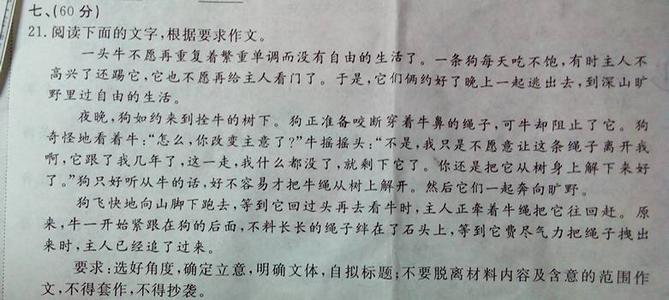 七、(60分)
21. 阅读下面的文字,根据要求作文。
一头牛不愿再重复着繁重单调而没有自由的生活了。一条狗每天吃不饱,有时主人不
高兴了还踢它,它也不愿再给主人看门了。于是,它们俩约好了晚上一起逃出去,到深山旷
野里过自由的生活。
夜晚,狗如约来到拴牛的树下。狗正准备咬断穿着牛鼻的绳子,可牛却阻止了它。狗
奇怪地看着牛:“怎么,你改变主意了?”牛摇摇头:“不是,我只是不愿意让这条绳子离开我
啊,它跟了我几年了,这一走,我什么都没了,就剩下它了。你还是把它从树身上解下来好
了。”狗只好听从牛的话,好不容易才把牛绳从树上解开。然后它们一起奔向旷野。
狗飞快地向山脚下跑去,等到它回过头再去看牛时,主人正牵着牛绳把它往回赶。原
来,牛一开始紧跟在狗的后面,不料长长的绳子绊在了石头上,等到它费尽气力把绳子拽出
来时,主人已经追了过来。
要求:选好角度,确定立意,明确文体,自拟标题;不要脱离材料内容及含意的范围作
文,不得套作,不得抄袭。